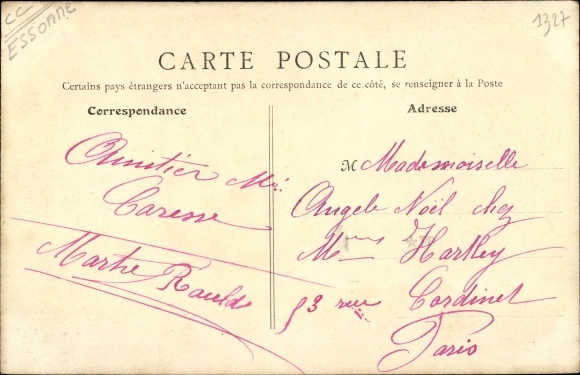 CC
ESSONNE
1327
CARTE POSTALE
Certains pays étrangers n'acceptant pas la correspondance de ce côté, se renseigner à la Poste
Correspondance
Caresse
Marthe
Adresse
M Mademoiselle
Angele Noël chez
Hartley
53 rue Cardinet
Paris